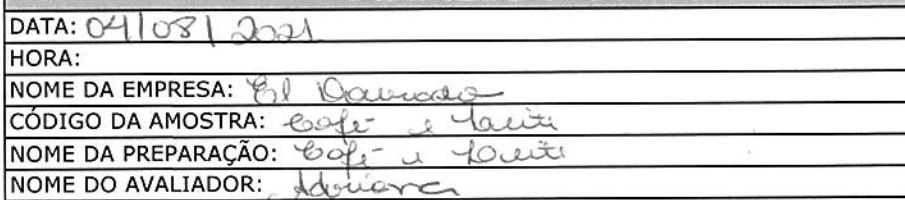 DATA: 04/08/2021
HORA:
NOME DA EMPRESA: El
CÓDIGO DA AMOSTRA: Café e Leite
NOME DA PREPARAÇÃO: Café e Leite
NOME DO AVALIADOR: Adriana